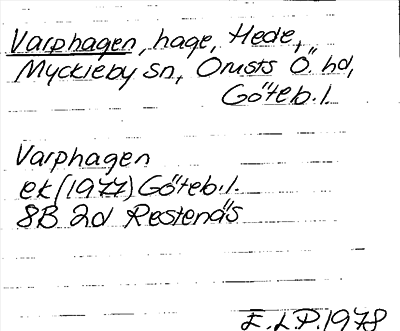 Varphagen, hage, Hede,
Myckleby sn, Orusts Ö. hd,
Göteb. l.
Varphagen
ek (1977) Göteb. l.
8B 2d Restenäs
E.L.P. 1978